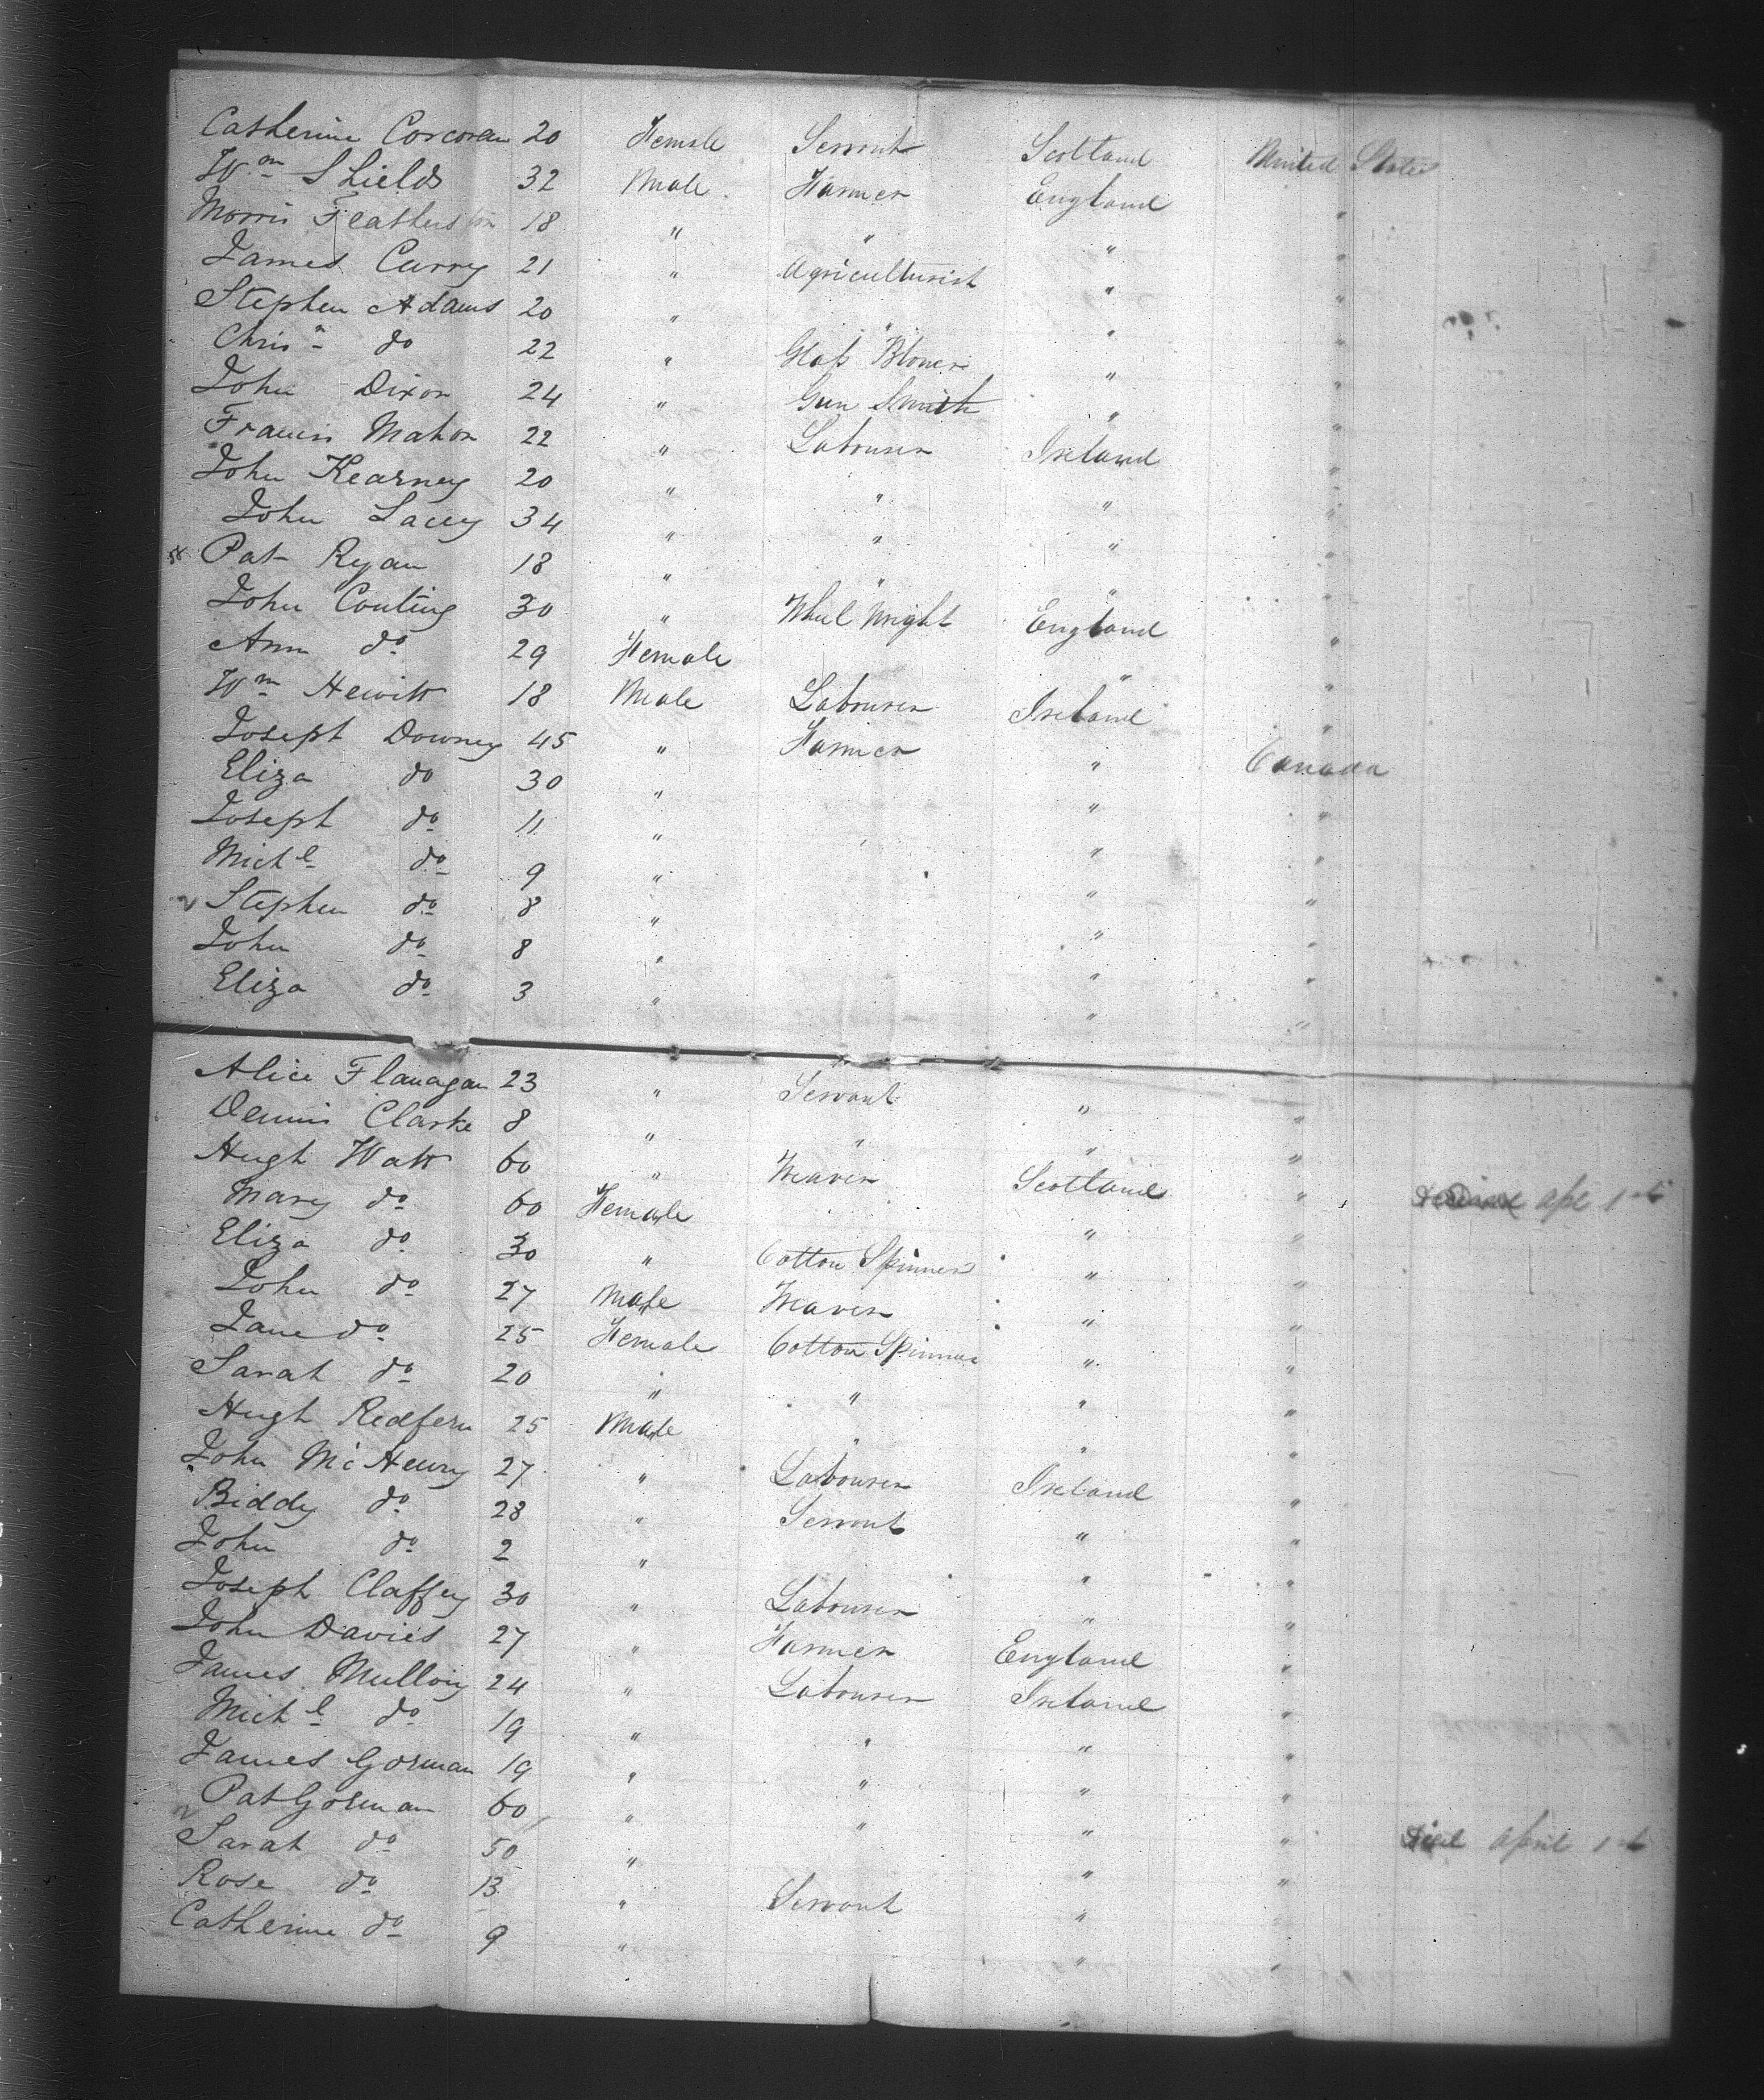 Catherine Corcoran 20 Female Servant Scotland United States
Wm Shields 32 Male Farmer England "
Morris Featherston 18 " " " "
James Curry 21 " Agriculturist " "
Stephen Adams 20 " " " "
Chrisr do 22 " Glass Blower " "
John Dixon 24 " Gun Smith " "
Francis Mahon 22 " Labourer Ireland "
John Kearney 20 " " " "
John Lacey 34 " " " "
Pat Ryan 18 " " " "
John Conting 30 " Wheel Wright England "
Ann do 29 Female " "
Wm Hewitt 18 Male Labourer Ireland "
Joseph Downey 45 " Farmer " Canada
Eliza do 30 " " "
Joseph do 11 " " "
Michl do 9 " " "
Stephen do 8 " " "
John do 8 " " "
Eliza do 3 " " "
Alice Flanagan 23 " Servant " "
Dennis Clarke 8 " " " "
Hugh Watt 60 " Weaver Scotland " Apl 1st
Mary do 60 Female " "
Eliza do 30 " Cotton Spinner " "
John do 27 Male Weaver " "
Jane do 25 Female Cotton Spinner " "
Sarah do 20 " " " "
Hugh Redfern 25 Male " " "
John McHenry 27 " Labourer Ireland "
Biddy do 28 " Servant " "
John do 2 " " "
Joseph Claffey 30 " Labourer " "
John Davies 27 " Farmer England "
James Mulloy 24 " Labourer Ireland "
Michl do 19 " " " "
James Gorman 19 " " " "
Pat Gorman 60 " " " " Died April 1st
Sarah do 50 " " "
Rose do 13 " Servant "
Catherine do 9 " "